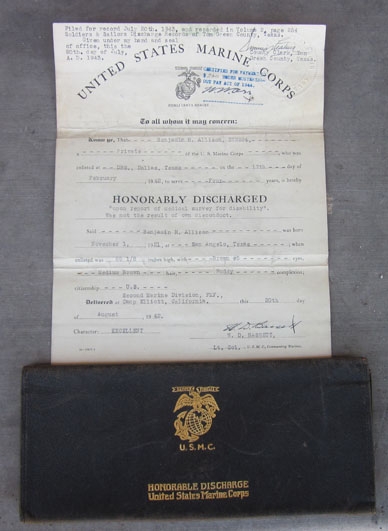 Filed for record July 20th, 1943, and recorded in Volume 2, page 484
Soldiers & Sailors Discharge Records of Tom Green County, Texas.
Given under my hand and seal
of office, this the
20th, day of July,
A. D. 1943.
County Clerk, Tom
Green County, Texas.
UNITED STATES MARINE CORPS
CERTIFIED FOR PAYMENT
OUT PAY ACT OF 1944.
To all whom it may concern:
Know ye, That Benjamin R. Allison,
a Private of the U. S. Marine Corps, who was
enlisted at DHS., Dallas, Texas on the day of
February 1942, to serve four years, is hereby
HONORABLY DISCHARGED
"upon report of medical survey for disability".
Was not the result of own misconduct.
Said Benjamin R. Allison was born
November 1, 1921, at San Angelo, Texas, when
enlisted was inches high, with eyes,
Medium Brown hair, Ruddy complexion;
citizenship U.S.
Second Marine Division, FMF.,
Delivered at Camp Elliott, California. this 20th day
of August 1942.
Character: EXCELLENT
Lt. Col. U.S.M.C., Commanding Marines.
U.S.M.C.
HONORABLE DISCHARGE
United States Marine Corps